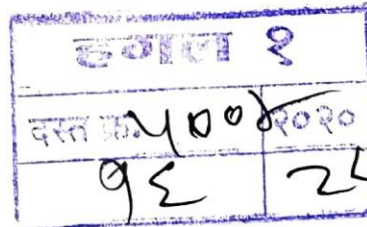 हगल १
दस्त क्र. ५००४ २०२०
१६ २८